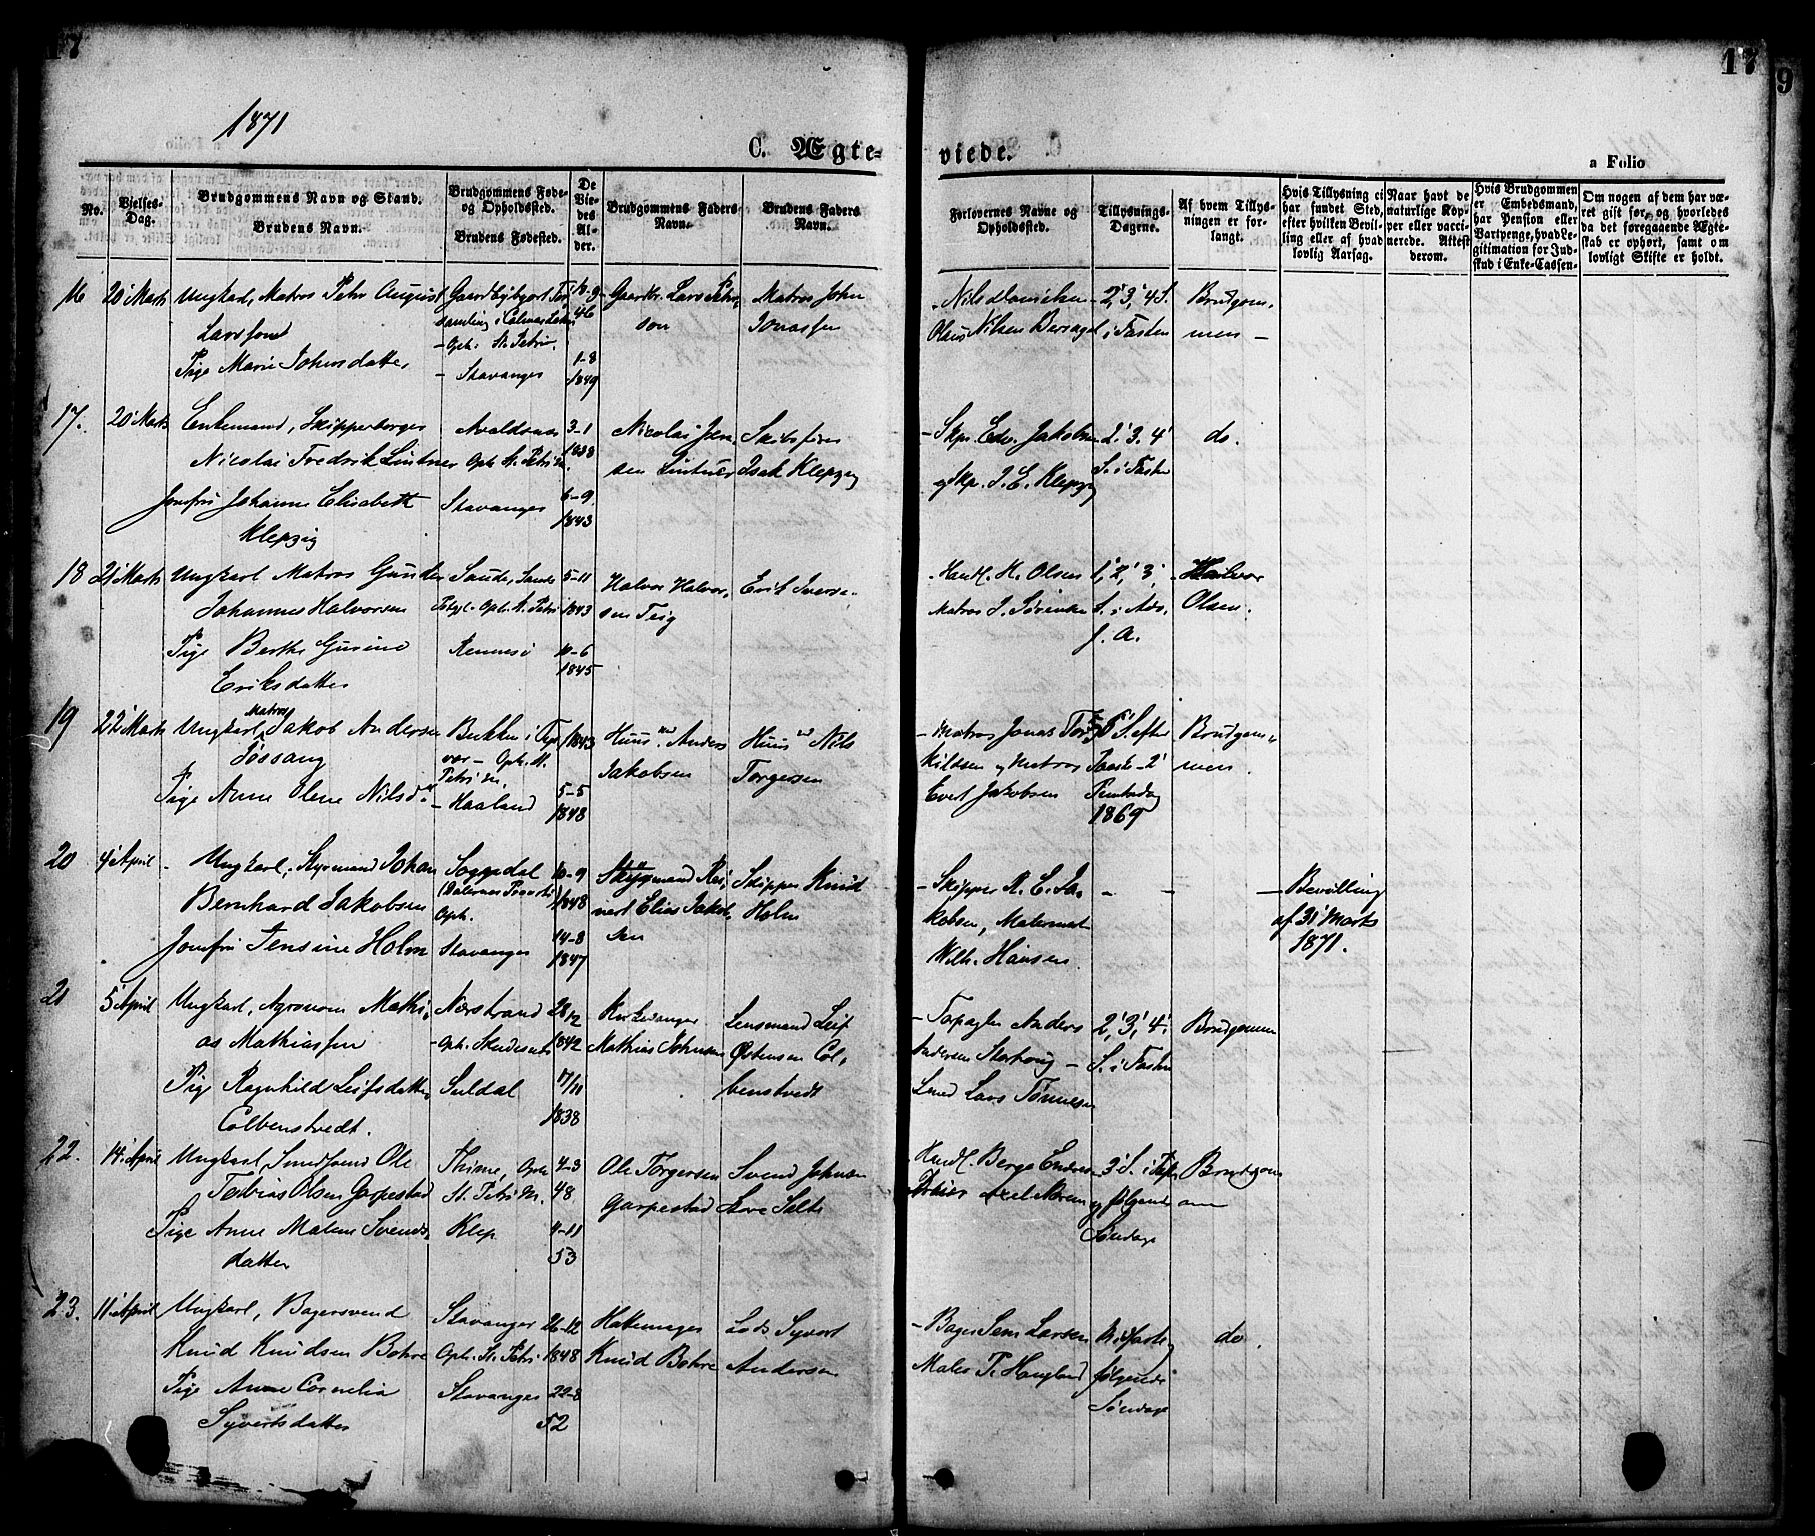 17
17
9
1871
C. Ægte-
viede.
a Folio
No.
Vielses-
Dag.
Brudgommens Navn og Stand.
Brudens Navn.
Brudgommens Føde-
og Opholdssted.
Brudens Fødested.
De
Vie-
des
Al-
der.
Brudgommens Faders
Navn.
Brudens Faders
Navn.
Forlovernes Navne og
Opholdssted.
Tillysnings-
Dagene.
Af hvem Tillys-
ningen er for-
langt.
Hvis Tillysning ei
har fundet Sted,
efter hvilken Bevil-
ling eller af hvad
lovlig Aarsag.
Naar havt de
naturlige Kop-
per eller vacci-
nerede. Attest
derom.
Hvis Brudgommen
er Embedsmand,
har Pension eller
Vartpenge, hvad Le-
gitimation for Ind-
skud i Enke-Cassen.
Om nogen af dem har væ-
ret gift før, og hvorledes
da det foregaaende Ægte-
skab er ophørt, samt om
lovligt Skifte er holdt.
16 20 Marts Ungkarl, Matros Petr August
Larsson
Pige Marie Johnsdatter
Oph: St. Petri.
- Stavanger
46
1-8
1849
Gaardbr. Lars Petrs-
son
Matros John
Jonassen
Nils Danielsen
Olaus Nilsen Bersagel
2', 3', 4 S.
i Fasten
Brudgom-
men -
17. 20 Marts Enkemand, Skipperborger
Nicolai Fredrik Lintner
Jomfru Johanne Elisabeth
Klepzig
Avaldsnæs
Oph St. Petri M.
Stavanger
3-1
1838
6-9
1843
Nicolai Jen-
sen Lintner
Isak Klepzig
- Skpr. Edv. Jakobsen
og Skp. I. E. Klepzig
2', 3', 4'
S. i Fasten
do.
18 21 Marts Ungkarl Matros Gunder
Johannes Halvorsen
Pige Berthe Gurine
Eriksdatter
Oph. St. Petri
Rennesø
5-11
1843
10-6
1845
Halvor Halvor-
sen Teig
Erik Iverse-
Handl. H. Olsen
Matros J. Sørensen
1', 2', 3',
f. A.
Halvor
Olsen.
19 22 Marts Ungkarl Matros Jakob Anderse
Jøssang
Pige Anne Olene Nilsdr
Bukken i
Oph. St.
Petri M.
- Haaland
1843
5-5
1848
Huusmd Anders
Jakobsen
Huusmd Nils
Torgersen
- Matros Jonas Tor-
kildsen og Matros
Evert Jakobsen
S. efter
Paaske - 2'
Pintsedag
1869
Brudgom-
men.
20 4 April - Ungkarl, Styrmand Johan
Bernhard Jakobsen
Jomfru Jensine Holm
Soggedal
(Dalernes Provsti)
Oph.
Stavanger
10-9
1848
14-8
1847
nert Elias Jakob-
sen
Skipper Knud
Holm
- Skipper R. E. Ja-
kobsen,
Wilh. Hansen.
-
-
- Bevilling
af 31 Marts
1871.
21 5 April Ungkarl, Agronom Mathi-
as Mathiassen
Pige Ragnhild Leifsdatter
Colbenstvedt.
Nærstrand
- Oph. Skudesnes
Suldal
28/2
1842
17/11
1838
Kirkesanger
Mathias Johnsen
Lensmand Leif
Østensen Col-
benstvedt
Anders
Andersen
Lars Tønnesen
2', 3', 4'.
S. i Fasten
Brudgommen
22. 14 April Ungkarl, Smedsvend Ole
Tobias Olsen Garpestad
Pige Anne Malene Svends-
datter
Thime, Oph
St. Petri M.
Klep
4-3
48
4-11
53
Ole Torgersen
Garpestad
Svend Johnsen
Store Salte
Handl. Berge Endresen
3' S. i Fasten
og følgende
Søndage
Brudgom-
men
23. 11 April Ungkarl, Bagersvend
Knud Knudsen Bohre
Pige Anne Cornelia
Syvertsdatter
Stavanger
Oph. St. Petri
Stavanger
26-12
1848
22-8
52
Hattemager
Knud Bohre
Lods Syvert
Andersen
- Bager Sem Larsen
Maler P. Haugland
følgende
Søndage
do.